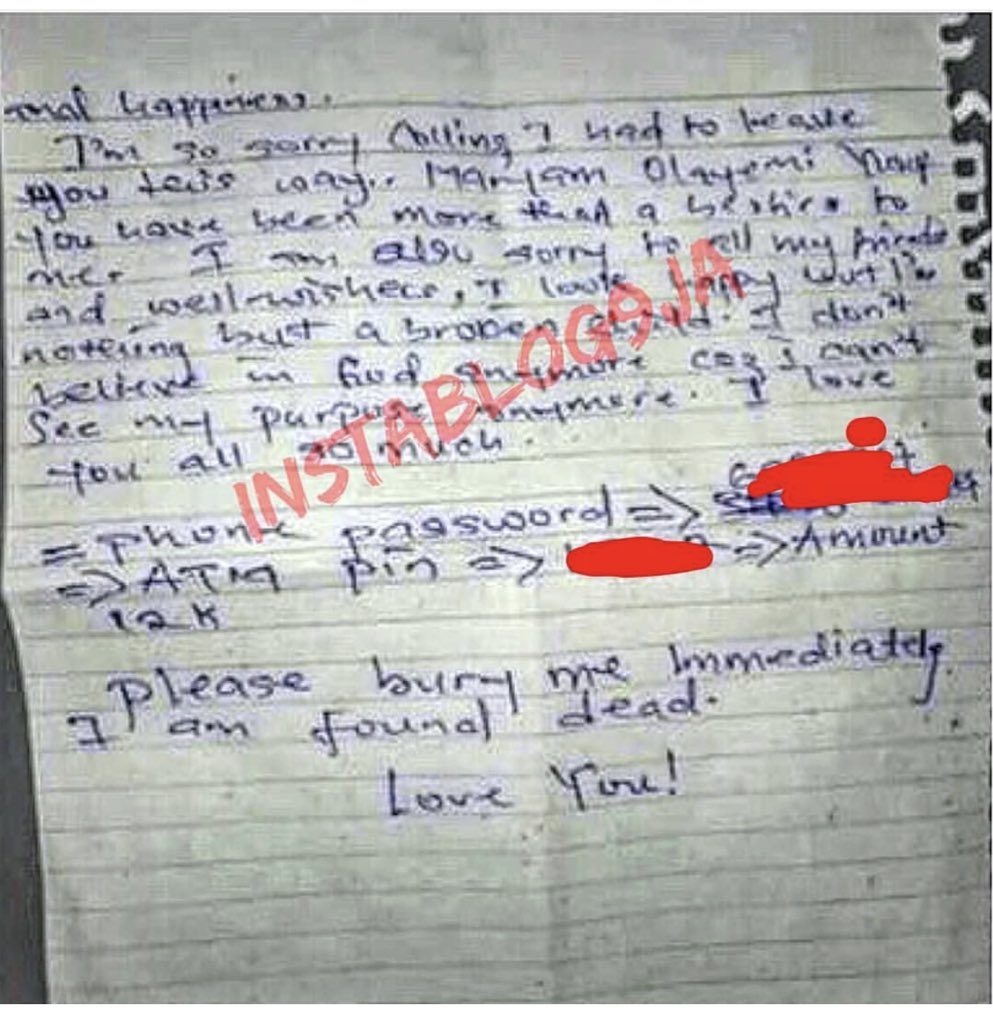 happiness.
I'm so sorry Colling, I had to leave
you this way.. Maryam Olayemi
you have been more than a besties to
me. I am also sorry to all my friends
and well-wishers, I look happy but I'm
nothing but a broken I don't
believe in God anymore coz I can't
see my purpose anymore. I love
you all so much.
INSTABLOG9JA
= phone password =>
=> ATM pin => => Amount
12K
Please bury me immediately
I am found dead.
Love You!